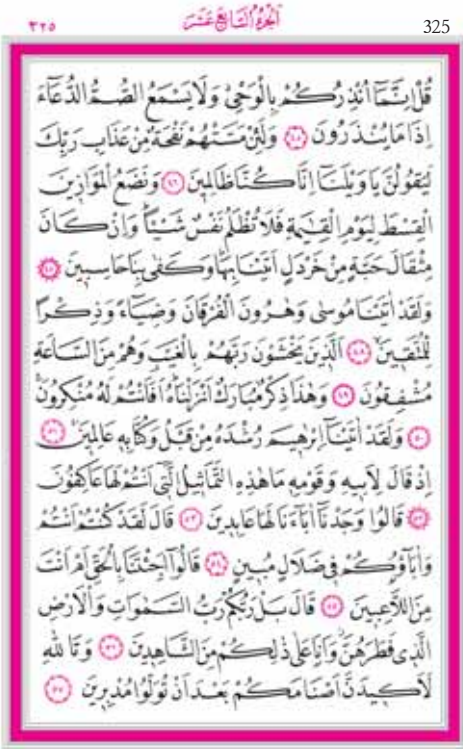 ٣٢٥ اَلْجُزْءُ السَّابِعَ عَشَرَ 325
قُلْ اِنَّمَٓا اُنْذِرُكُمْ بِالْوَحْيِ وَلَا يَسْمَعُ الصُّمُّ الدُّعَٓاءَ
اِذَا مَا يُنْذَرُونَ ﴿٤٥﴾ وَلَئِنْ مَسَّتْهُمْ نَفْحَةٌ مِنْ عَذَابِ رَبِّكَ
لَيَقُولُنَّ يَا وَيْلَنَٓا اِنَّا كُنَّا ظَالِمِينَ ﴿٤٦﴾ وَنَضَعُ الْمَوَازِينَ
الْقِسْطَ لِيَوْمِ الْقِيٰمَةِ فَلَا تُظْلَمُ نَفْسٌ شَيْـًٔا وَاِنْ كَانَ
مِثْقَالَ حَبَّةٍ مِنْ خَرْدَلٍ اَتَيْنَا بِهَا وَكَفٰى بِنَا حَاسِبِينَ ﴿٤٧﴾
وَلَقَدْ اٰتَيْنَا مُوسٰى وَهٰرُونَ الْفُرْقَانَ وَضِيَٓاءً وَذِكْرًا
لِلْمُتَّقِينَ ﴿٤٨﴾ اَلَّذِينَ يَخْشَوْنَ رَبَّهُمْ بِالْغَيْبِ وَهُمْ مِنَ السَّاعَةِ
مُشْفِقُونَ ﴿٤٩﴾ وَهٰذَا ذِكْرٌ مُبَارَكٌ اَنْزَلْنَاهُ اَفَاَنْتُمْ لَهُ مُنْكِرُونَ
﴿٥٠﴾ وَلَقَدْ اٰتَيْنَٓا اِبْرٰهِيمَ رُشْدَهُ مِنْ قَبْلُ وَكُنَّا بِهِ عَالِمِينَ ﴿٥١﴾
اِذْ قَالَ لِاَبِيهِ وَقَوْمِهِ مَا هٰذِهِ التَّمَاثِيلُ الَّتِٓي اَنْتُمْ لَهَا عَاكِفُونَ
﴿٥٢﴾ قَالُوا وَجَدْنَٓا اٰبَٓاءَنَا لَهَا عَابِدِينَ ﴿٥٣﴾ قَالَ لَقَدْ كُنْتُمْ اَنْتُمْ
وَاٰبَٓاؤُكُمْ فِي ضَلَالٍ مُبِينٍ ﴿٥٤﴾ قَالُٓوا اَجِئْتَنَا بِالْحَقِّ اَمْ اَنْتَ
مِنَ اللَّاعِبِينَ ﴿٥٥﴾ قَالَ بَلْ رَبُّكُمْ رَبُّ السَّمٰوَاتِ وَالْاَرْضِ
الَّذِي فَطَرَهُنَّ وَاَنَا عَلٰى ذٰلِكُمْ مِنَ الشَّاهِدِينَ ﴿٥٦﴾ وَتَاللّٰهِ
لَاَكِيدَنَّ اَصْنَامَكُمْ بَعْدَ اَنْ تُوَلُّوا مُدْبِرِينَ ﴿٥٧﴾